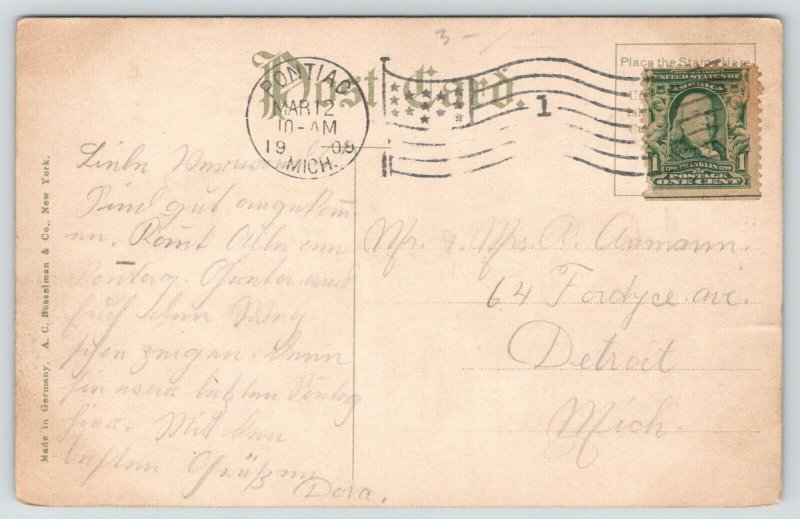 3-
Post Card.
Place the Stamp Here
PONTIAC
MAR 12
10-AM
1908
MICH.
1
UNITED STATES OF
AMERICA
1706 FRANKLIN 1790
POSTAGE
ONE CENT
1 1
Made in Germany. A. C. Bosselman & Co., New York.
Liebe
Sind gut angekom-
en. Komt Alle am
Sontag.
euch den Weg
schon zeigen. denn
sie war letzten Sontag
hier. Mit den
besten Grüßen
Dora.
Mr. & Mrs. R. Aumann.
64 Fordyce ave.
Detroit
Mich.